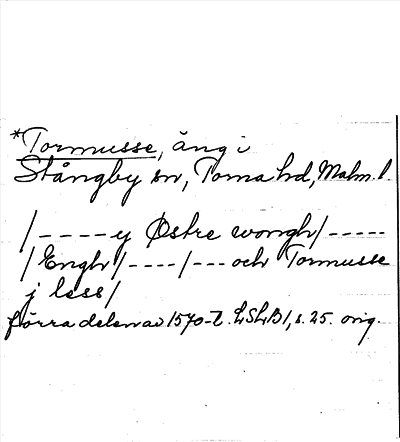 *Tormusse, äng i
Stångby sn, Torna hd, Malm. l.
/----y Østre wongh/-----
/Engh/----/---och Tormusse
j less/
förra delen av 1570-t. LSLB1, s. 25. orig.